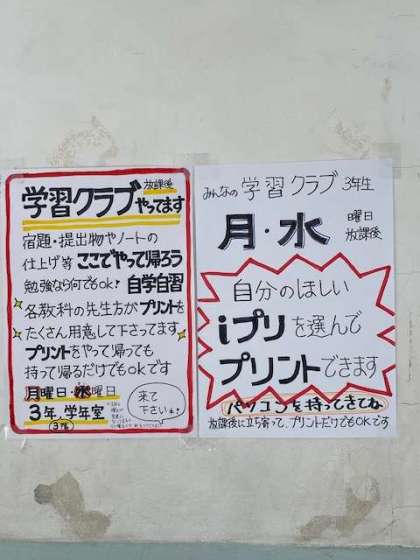 学習クラブ 放課後
やってます
宿題・提出物やノートの
仕上げ等 ここでやって帰ろう
勉強なら何でもok! 自学自習
各教科の先生方がプリントを
たくさん用意して下さってます
プリントをやって帰っても
持って帰るだけでもOKです
月曜日・水曜日
3年 学年室
来て
下さいネ!
みんなの 学習クラブ 3年生
月・水 曜日
放課後
自分のほしい
iプリを選んで
プリントできます
パソコンを持ってきてね
放課後に立ち寄って、プリントだけでもOKです